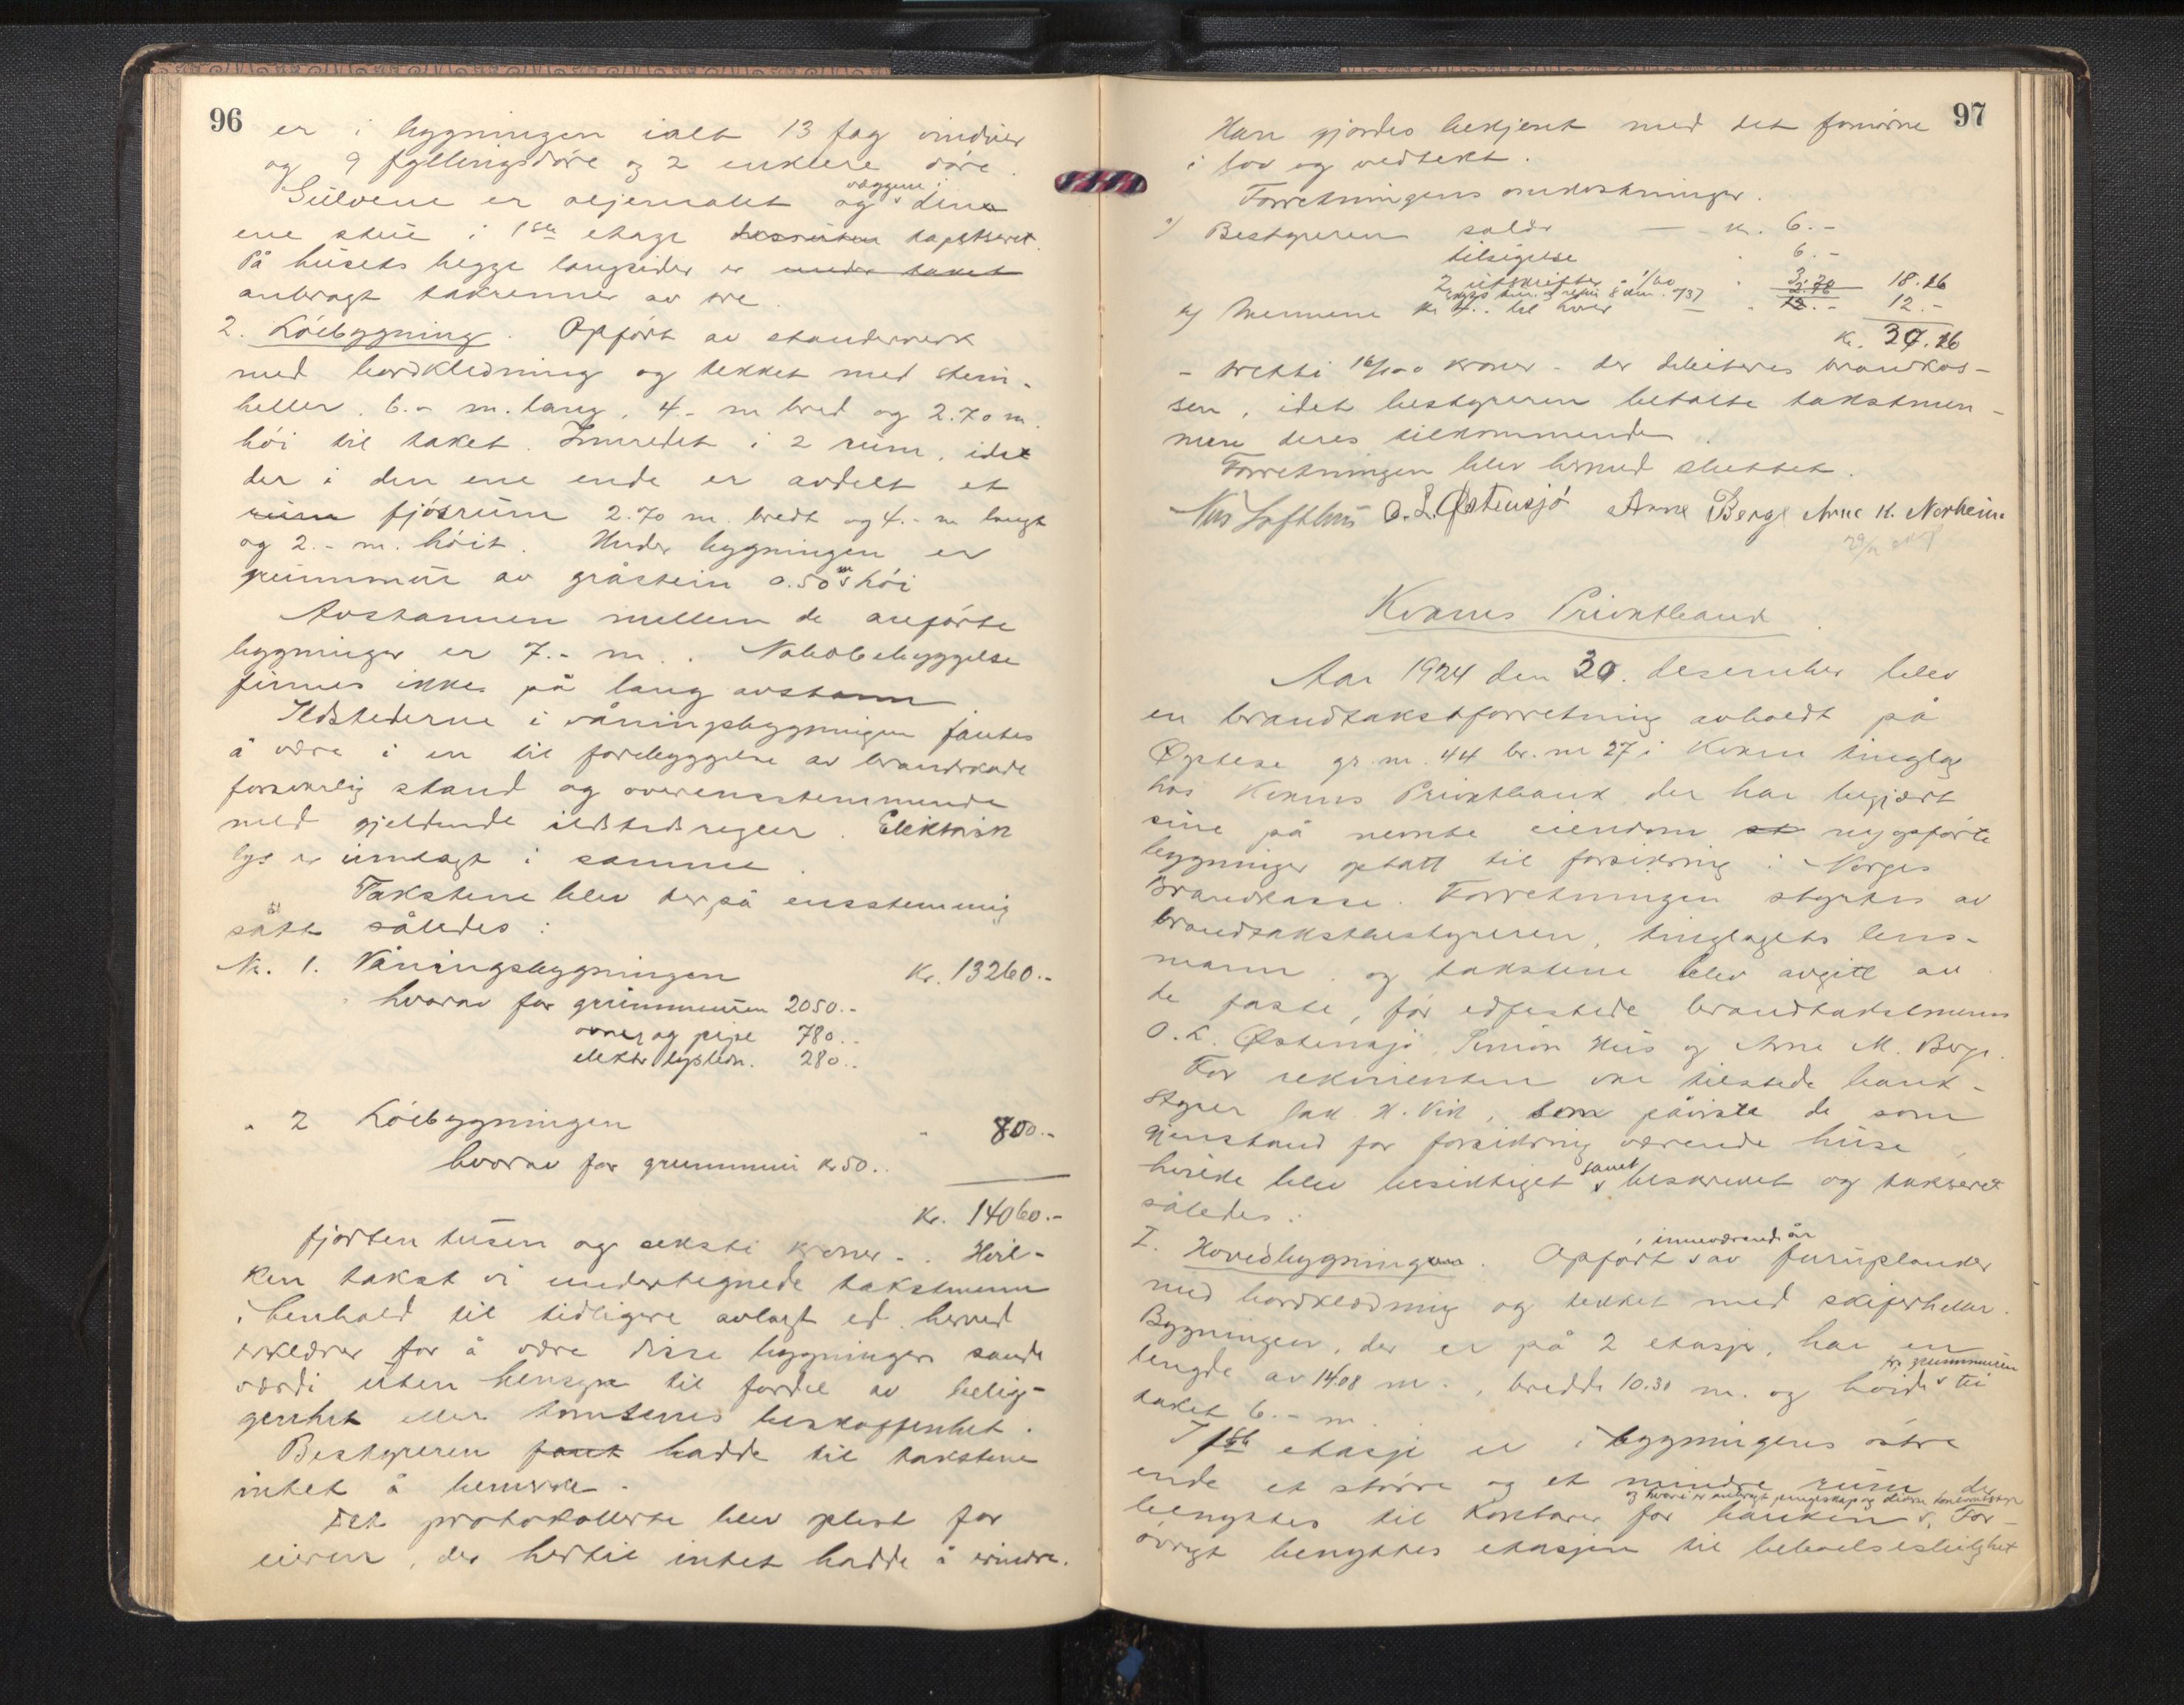 96
er i bygningen ialt 13 fag vinduer
og 9 fyllingsdöre og 2 enklere döre.
Gulvene er oljemalet og væggene i den
ene stue i 1ste etage desuten tapetseret.
På husets begge langsider er under taket
anbragt takrenner av tre.
2. Löebygning. Opfört av stenderverk
med bordklædning og tekket med sten-
heller. 6.- m. lang, 4.- m bred og 2.70 m.
höi til taket. Innredet i 2 rum, idet
der i den ene ende er avdelt et
rum fjösrum 2.70 m. bredt og 4.- m langt
og 2.- m. höit. Under bygningen er
grunnmur av gråstein 0.50 m höi
Avstannen mellem de anförte
bygninger er 7.- m. . Nabobebyggelse
finnes ikke på lang avstann
Ildstederne i våningsbygningen fantes
å være i en til forebyggelse av brandskade
forsvarlig stand og overensstemmende
med gjeldende ildstedsregler. Elektrisk
lys er innlagt i samme.
Takstene blev derpå ensstemmig
satt således:
Nr. 1. Våningsbygningen Kr. 13260.-
hvorav for grunnmuren 2050.-
ovner og pipe 780.-
elektr lysledn. 280.-
" 2 Löebygningen " 800.-
hvorav for grunnmur kr 50.-
Kr. 14060.-
fjorten tusen og seksti kroner - . Hvil-
ken takst vi undertegnede takstmenn
i henhold til tidligere avlagt ed herved
erklærer for å være disse bygningers sande
værdi uten hensyn til fordel av belig-
genhet eller tomtenes beskaffenhet.
Bestyreren fant hadde til takstene
intet å bemerke.
Det protokollerte blev oplest for
eieren, der hertil intet hadde å erindre.
97
Han gjordes bekjent med det fornödne
i lov og vedtekt.
Forretningens omkostninger.
a) Bestyreren salær — kr. 6.-
tilsigelse " 6.-
2 utskrifter à 1/60 " 3.20
skyss frem og retur 8 km. 18.16
b) Mennene kr 4.- til hver — " 12.- 12.-
Kr. 30.16
- tretti 16/100 kroner - der debiteres brandkas-
sen, idet bestyreren betalte takstmen-
nene deres tilkommende.
Forretningen blev hermed sluttet.
Nils Lofthus O. L. Østensjö Arne Berge Arne H. Norheim
Kvams Privatbank.
Aar 1924 den 30. desember blev
en brandtakstforretning avholdt på
Øystese gr. nr. 44 br. nr 27 i Kvam tinglag
hos Kvams Privatbank, der har begjært
sine på nevnte eiendom nyopförte
bygninger optatt til forsikring i Norges
Brandkasse. Forretningen styrtes av
brandtakstbestyreren, tinglagets lens-
mann, og takstene blev avgitt av
de faste, för edfestede brandtakstmenn
O. L. Østensjö, Simon Hus og Arne M. Berge.
For rekvirenten var tilstede bank-
styrer Jak. H. Vik, som påviste de som
gjenstand for forsikring værende huse,
hvilke blev besiktiget samt beskrevet og taksert
således:
I. Hovedbygningen. Opfört i inneværende år av furuplanker
med bordklædning og tekket med skiferheller.
Bygningen, der er på 2 etasjer, har en
lengde av 14.08 m., bredde 10.30 m. og höide fr. grunnmuren til
taket 6.- m.
I 1ste etasje er i bygningens östre
ende et större og et mindre rum der
benyttes til kontorer for banken og hvori er anbragt pengeskap og. For-
övrigt benyttes etasjen til beboelsesleilighet